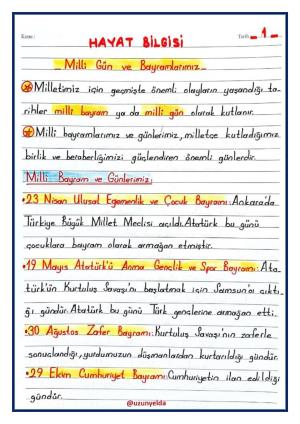 Konu:
Tarih: _ 1 _
HAYAT BİLGİSİ
_ Milli Gün ve Bayramlarımız_
Milletimiz için geçmişte önemli olayların yaşandığı ta-
rihler milli bayram ya da milli gün olarak kutlanır.
Milli bayramlarımız ve günlerimiz, milletçe kutladığımız
birlik ve beraberliğimizi güçlendiren önemli günlerdir.
Milli Bayram ve Günlerimiz:
•23 Nisan Ulusal Egemenlik ve Çocuk Bayramı: Ankara'da
Türkiye Büyük Millet Meclisi açıldı. Atatürk bu günü
çocuklara bayram olarak armağan etmiştir.
•19 Mayıs Atatürk'ü Anma Gençlik ve Spor Bayramı: Ata-
türk'ün Kurtuluş Savaşı'nı başlatmak için Samsun'a çıktı-
ğı gündür. Atatürk bu günü Türk gençlerine armağan etti.
•30 Ağustos Zafer Bayramı: Kurtuluş Savaşı'nın zaferle
sonuçlandığı, yurdumuzun düşmanlardan kurtarıldığı gündür.
•29 Ekim Cumhuriyet Bayramı: Cumhuriyetin ilan edildiği
gündür.
@uzunyelda